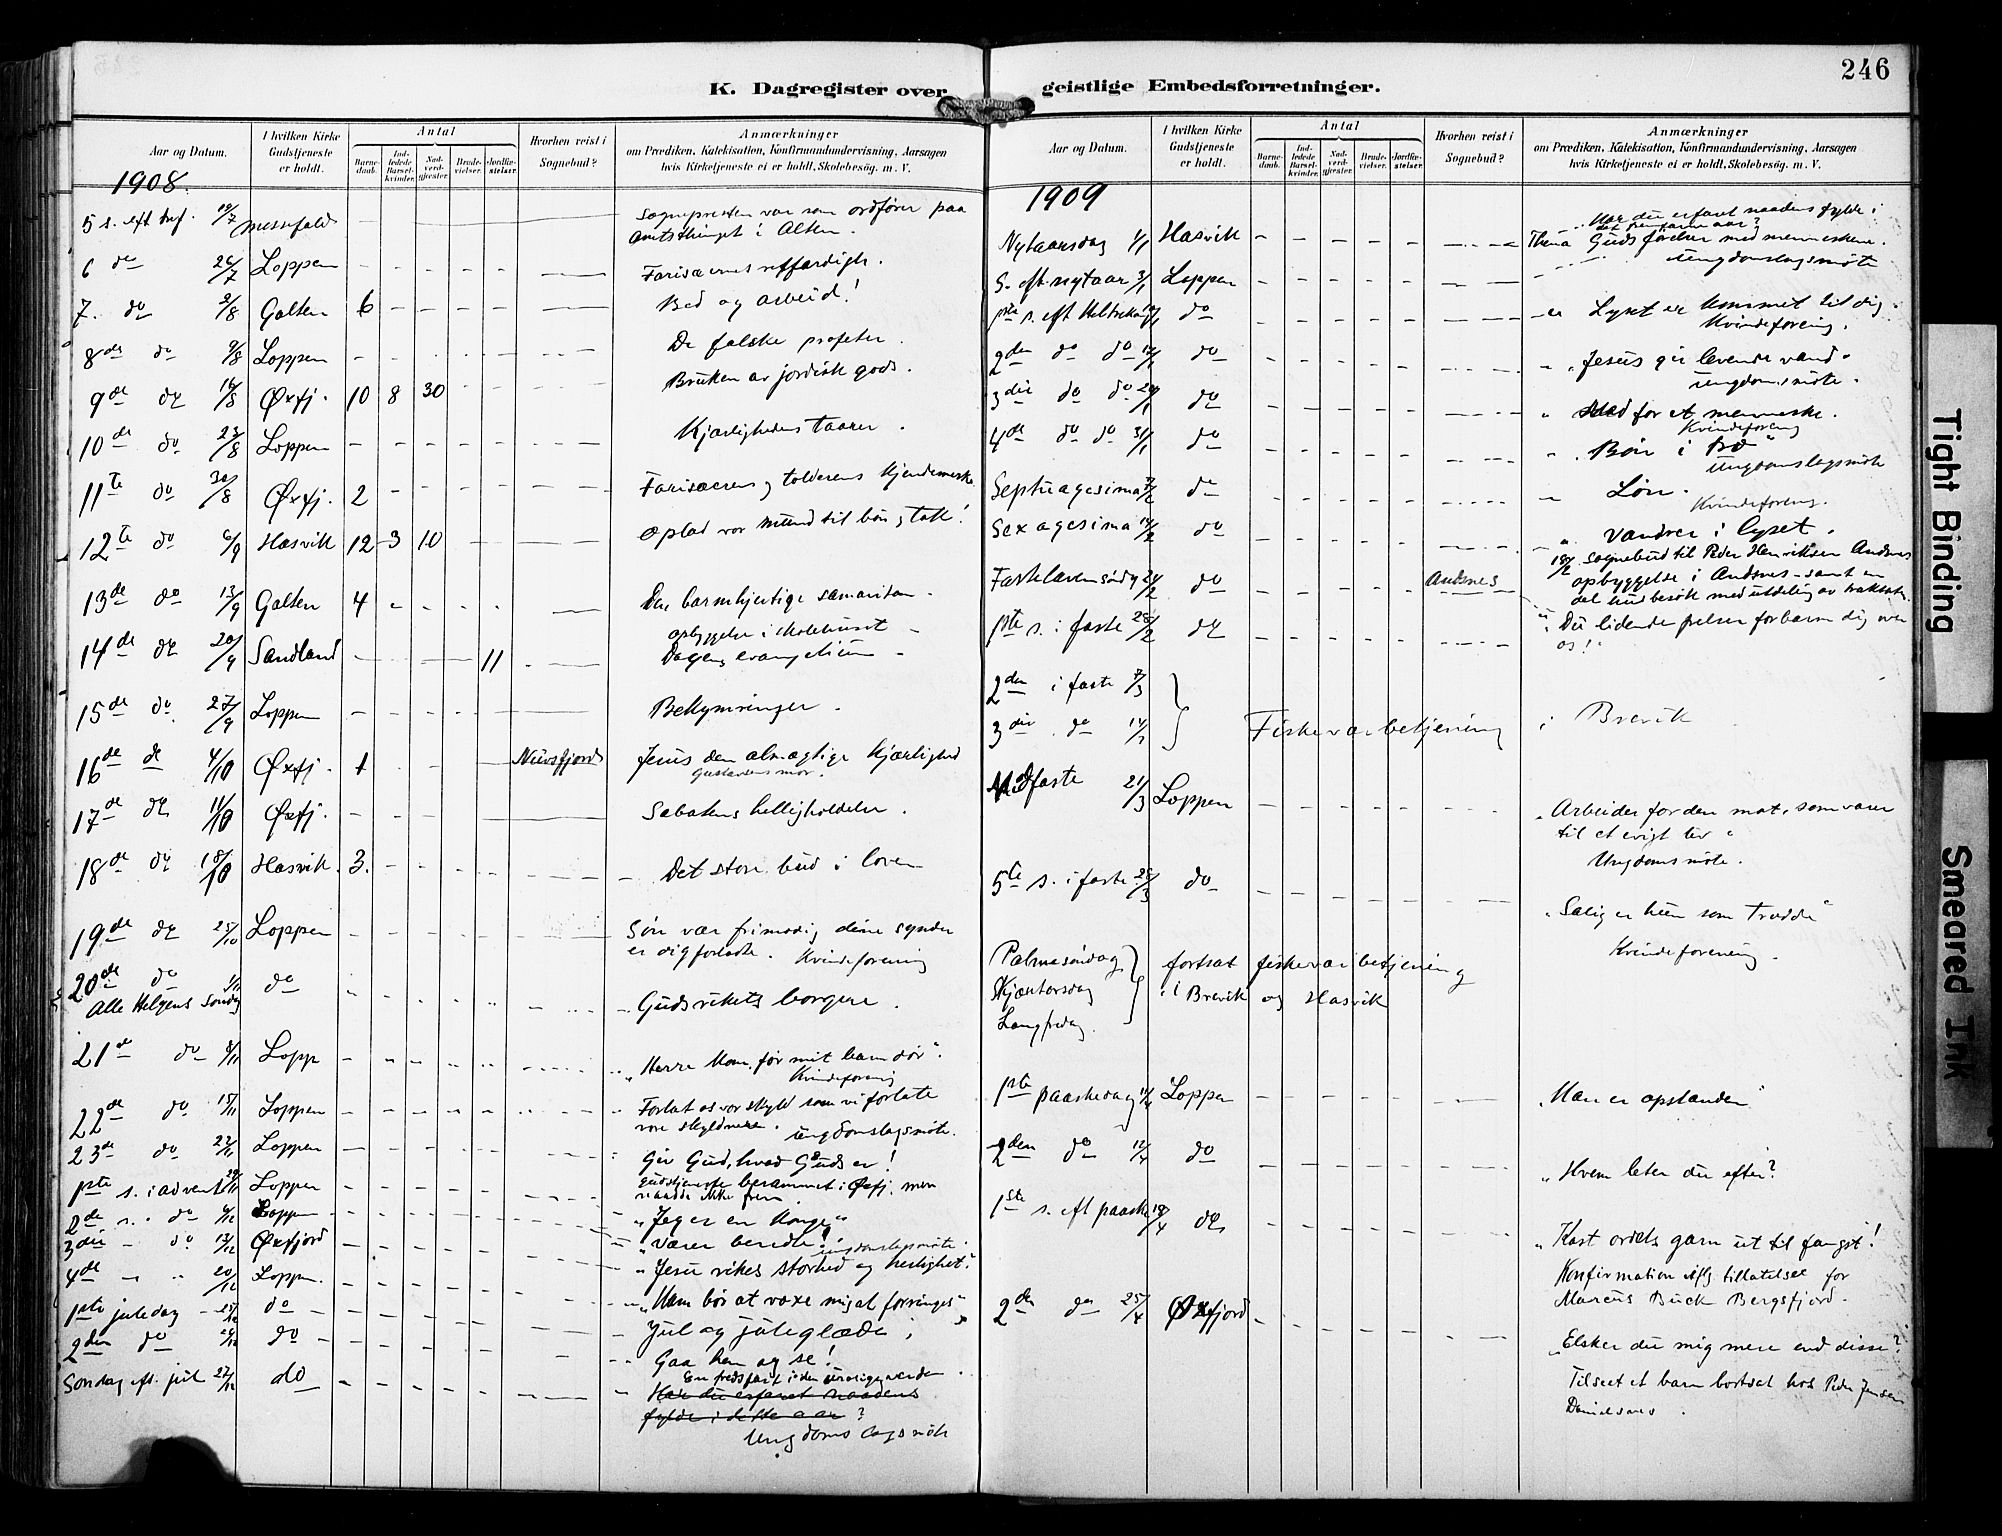 246
K. Dagregister over geistlige Embedsforretninger.
Aar og Datum.
I hvilken Kirke Gudstjeneste er holdt.
Antal
Barnedaab.
Indledede Barselkvinder.
Nadverdgjester.
Brudevielser.
Jordfæstelser.
Hvorhen reist i Sognebud?
Anmærkninger
om Prædiken, Katekisation, Konfirmandundervisning, Aarsagen
hvis Kirketjeneste ei er holdt, Skolebesög. m. V.
1908.
5 s. eft tref. 19/7 Messefald Sognepresten var som ordfører paa
amtsthinget i Alten.
6 do 26/7 Loppen Farisæernes retfærdigh.
7. do 2/8 Galten 6 Bed og arbeid!
8de do 9/8 Loppen De falske profeter.
9de do 16/8 Øxfj. 10 8 30 Bruken av jordisk gods.
10de do 23/8 Loppen Kjærlighedens taarer.
11te do 30/8 Øxfj. 2 Farisæerens og tolderens kjendemerke
12te do 6/9 Hasvik 12 3 10 Oplad vor mund til bøn og tak!
13de do 13/9 Galten 4 Den barmhjertige samaritan.
14de do 20/9 Sandland 11 opbyggelse i skolehuset
Dagens evangelium
15de do 27/9 Loppen Bekymringer.
16de do 4/10 Øxfj. 1 Nuvsfjord Jesus den almægtige kjærlighed
17de do 11/10 Øxfj. Sabatens helligholdelse.
18de do 18/10 Hasvik 3. Det store bud i loven
19de do 25/10 Loppen Søn vær frimodig dine synder
er dig forladte. Kvindeforening
20de do 1/11 do
Alle Helgens Søndag Guds rikets borgere.
21de do 8/11 Lopp "Herre kom, før mit barn dør".
Kvindeforening
22de do 15/11 Loppen Forlat os vor skyld som vi forlate
vore skyldnere. Ungdomslagsmøte.
23de do 22/11 Loppen Gir Gud, hvad Guds er!
1ste s. i advent 29/11 Loppen Gudstjeneste berammet i Øxfj. men
naadde ikke frem
2den s. do 6/12 Loppen "Jeg er en konge"
3die - do 13/12 Øxfjord "Værer beredte! ungdomslagsmøte.
4de " " 20/12 Loppen. "Jesu rikes storhed og herlighet".
1ste juledag - 25/12 do "Ham bør at voxe mig at forringes"
2den do 26/12 do Jul og juleglæde!
Gaa hen og se!
Søndag eft. jul 27/12 do En fredsfyrst i den urolige verden.
Har du erfaret naadens
fylde i dette aar?
Ungdomslagsmøte
Aar og Datum.
I hvilken Kirke Gudstjeneste er holdt.
Antal
Barnedaab.
Indledede Barselkvinder.
Nadverdgjester.
Brudevielser.
Jordfæstelser.
Hvorhen reist i Sognebud?
Anmærkninger
om Prædiken, Katekisation, Konfirmandundervisning, Aarsagen
hvis Kirketjeneste ei er holdt, Skolebesög. m. V.
1909
Har du erfaret naadens fylde i
Nytaarsdag 1/1 Hasvik Thema Guds færden med menneskene.
S. eft. nytaar 3/1 Loppen Ungdomslagsmøte
1ste s. eft Heltrekong. 10/1 do Lyset er kommet til dig.
Kvindeforening.
2den do do 17/1 do "Jesus gir levende vand"
ungdomsmøte.
3die do do 24/1 do " Sted for et menneske.
Kvindeforening
4de do do 31/1 do Bøn i tro"
Ungdomslagsmøte
Septuagesima 7/2 do Løn.
Kvindeforening.
Sexagesima 14/2 do vandrer i lyset.
Fastelavensøndg 21/2 do Andsnes 18/2 sognebud til Peder Henriksen Andsnes
opbyggelse i Andsnes - samt en
del husbesøk med utdeling av traktater.
1ste s. i faste 28/2 do "Du lidende frelser forbarm dig over
os!"
2den i faste 7/3
3die do 14/3 Fiskeværbetjening i Brevik
Midfaste 21/3 Loppen "Arbeider for den mat, som varer
til et evigt liv"
Ungdomsmøte.
5te s. i faste 28/3 do "Salig er hun som trodde"
Kvindeforening.
Palmesøndag fortsat fiskeværbetjening
Skjærtorsdag i Brevik og Hasvik
Langfredag.
1ste paaskedag 11/4 Loppen "Han er opstanden"
2den do 12/4 do "Hvem leter du efter?
1ste s. eft paaske 18/4 do "Kast ordets garn ut til fangst!
Konfirmation iflg tillatelse for
Marcus Buck Bergsfjord.
2den do 25/4 Øxfjord "Elsker du mig mere end disse?"
Tilseet et barn bortsat hos Peder Jensen
Danielsnes.
Tight Binding
Smeared Ink